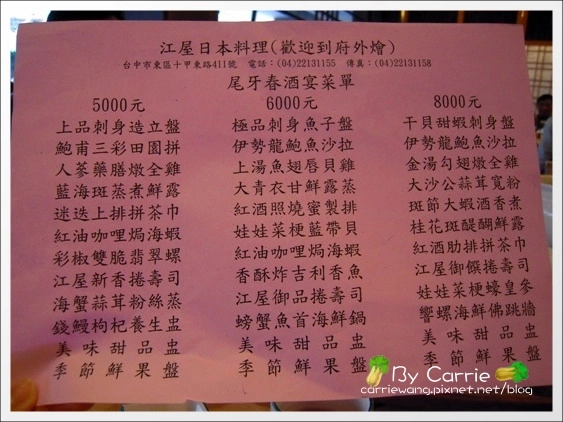 江屋日本料理(歡迎到府外燴)
台中市東區十甲東路411號 電話：(04)22131155 傳真：(04)22131158
尾牙春酒宴菜單
5000元
上品刺身造立盤
鮑甫三彩田園拼
人蔘藥膳燉全雞
藍海斑蒸煮鮮露
迷迭上排拼茶巾
紅油咖哩焗海蝦
彩椒雙脆翡翠螺
江屋新香捲壽司
海蟹蒜茸粉絲蒸
錢鰻枸杞養生盅
美味甜品盅
季節鮮果盤
6000元
極品刺身魚子盤
伊勢龍鮑魚沙拉
上湯魚翅唇貝雞
大青衣甘鮮露蒸
紅酒照燒蜜製排
娃娃菜梗藍帶貝
紅油咖哩焗海蝦
香酥炸吉利香魚
江屋御品捲壽司
螃蟹魚首海鮮鍋
美味甜品盅
季節鮮果盤
8000元
干貝甜蝦刺身盤
伊勢龍鮑魚沙拉
金湯勾翅燉全雞
大沙公蒜茸寬粉
斑節大蝦酒香煮
桂花斑醍醐鮮露
紅酒肋排拼茶巾
江屋御饌捲壽司
娃娃菜梗蠔皇參
響螺海鮮佛跳牆
美味甜品盅
季節鮮果盤
By Carrie
carriewang.pixnet.net/blog